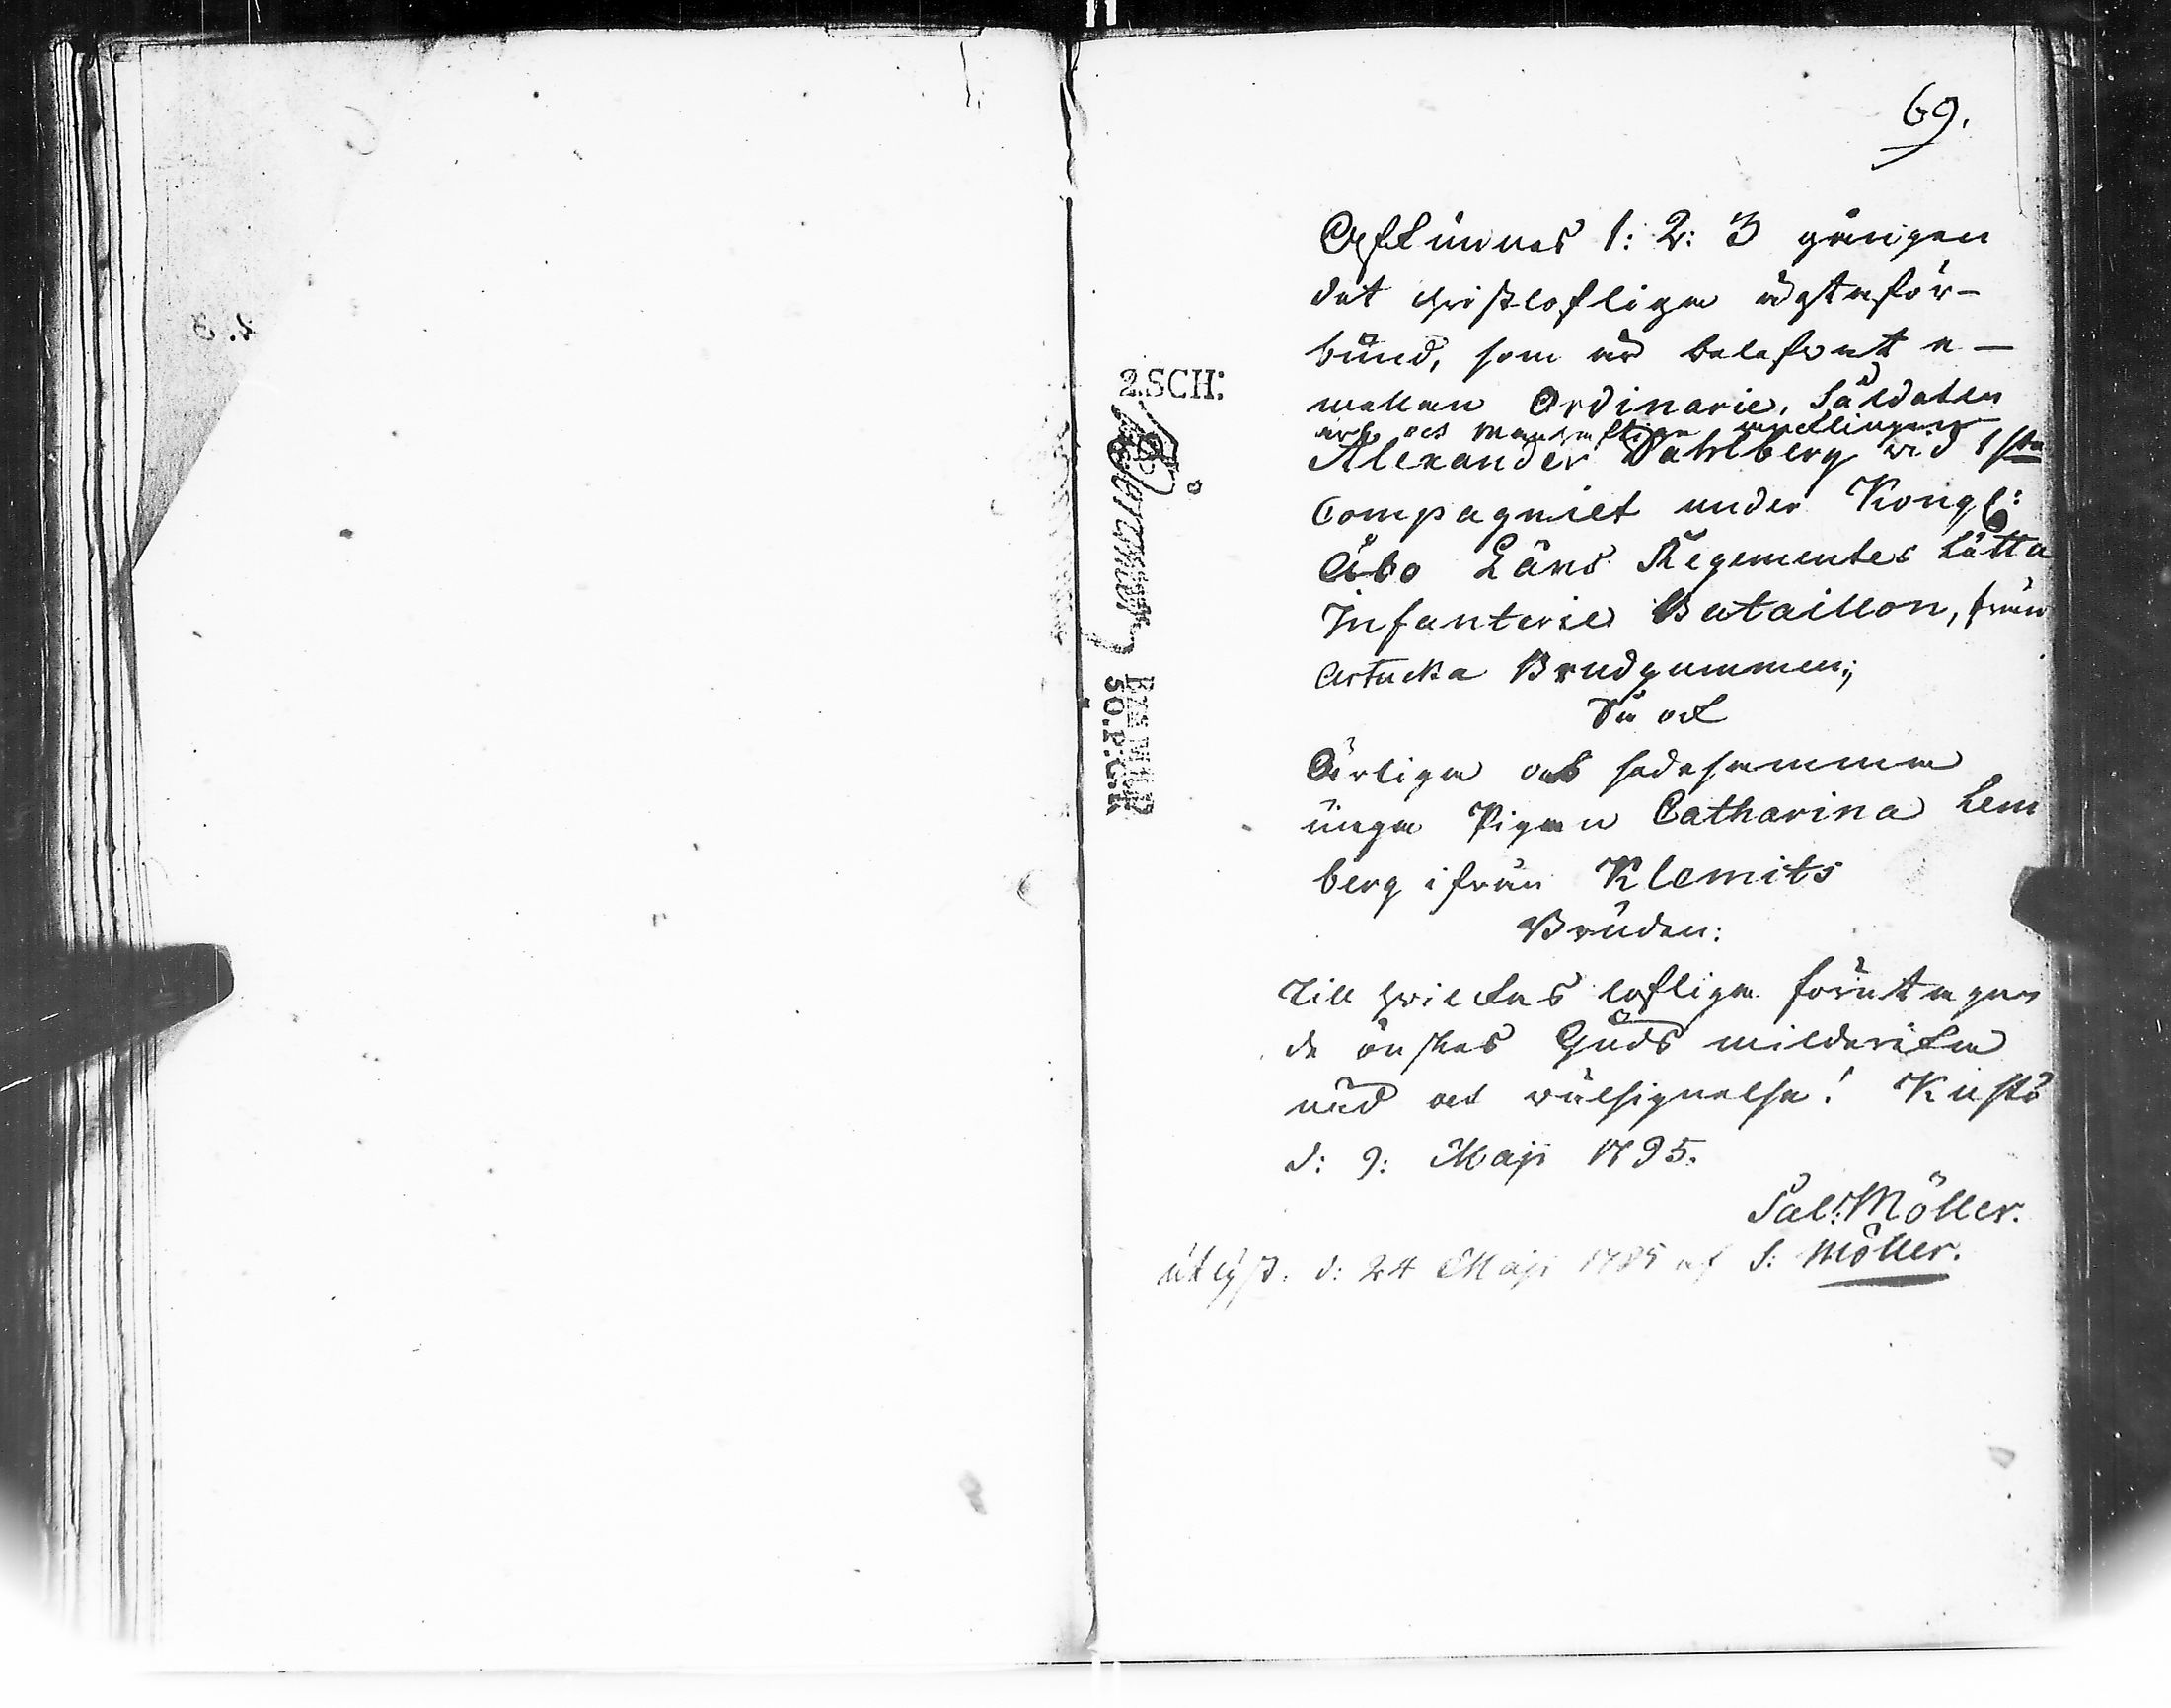 69.
Afkunnes 1: 2: 3 gången
det christlofliga ägtaför-
bund, som är belefvat e-
mellan Ordinarie, Såldaten
ärb. och Manhaftige ynglingen
Alexander Dahlberg vid 1sta
Compagniet under Kongl:
Åbo Läns Regementes Lätta
Infanterie Bataillon, från
Artucka Brudgummen;
Så ock
Ärliga och sedesamma
unga Pigan Catharina Lem
berg ifrån Klemits
Bruden:
Till hvilckas lofliga företagan
de önskes Guds milderika
nåd och wälsignelse! Kustö
d: 9: Maji 1795.
Sal: Möller.
utlyst. d: 24 Maji 1795 af S: Möller.
2.SCH:
SÖ.P:C:R